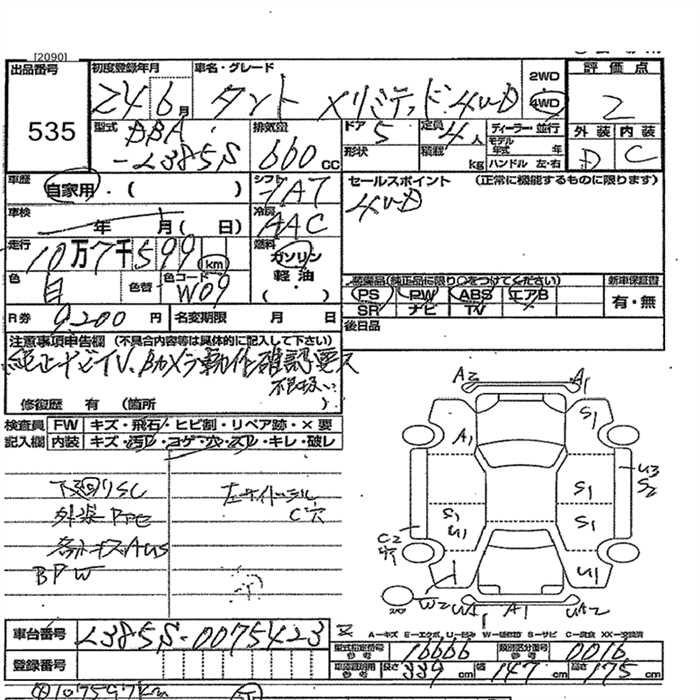 [2090]
出品番号 535
初度登録年月 Z4 6月
車名・グレード タント Xリミテッド 4WD
2WD 4WD
評価点 2
型式 DBA-L385S
排気量 660 cc
ドア 5 定員 4人 ディーラー・並行
形状 積載 kg モデル年式 年 ハンドル 左・右
外装 D 内装 C
車歴 自家用・( )
シフト 7AT
セールスポイント (正常に機能するものに限ります)
4WD
車検 年 月( 日)
冷房 AAC
走行 10万7千599 km
燃料 ガソリン・軽油 ( ・ )
色 白 色替 色コード W09
装備品(純正品に限り○をつけてください) 新車保証書
PS PW ABS エアB 有・無
SR ナビ TV
R券 9,200円 名変期限 月 日
後日品
注意事項申告欄 (不具合内容等は具体的に記入して下さい)
純正ナビTV、Bカメラ動作確認要ス
不良扱い
修復歴 有 (箇所 )
検査員 FW キズ・飛石・ヒビ割・リペア跡・×要
記入欄 内装 キズ・汚レ・コゲ・穴・スレ・キレ・破レ
下回リSC
左サイドシル
C穴
各部キズAUS
BPW
A2 A1
A1 S1
U3
S2
S1
S1 U1 S1
C2
U1
W2 A1
スペア
A-キズ E-エクボ U-凹み W-補修跡 S-サビ C-腐食 XX-交換済
車台番号 L385S-0075423
型式指定番号 参考 16666 類別区分番号 参考 0016
登録番号
車認証明用 参考 長さ 339cm 幅 147cm 高さ 175cm
107597km